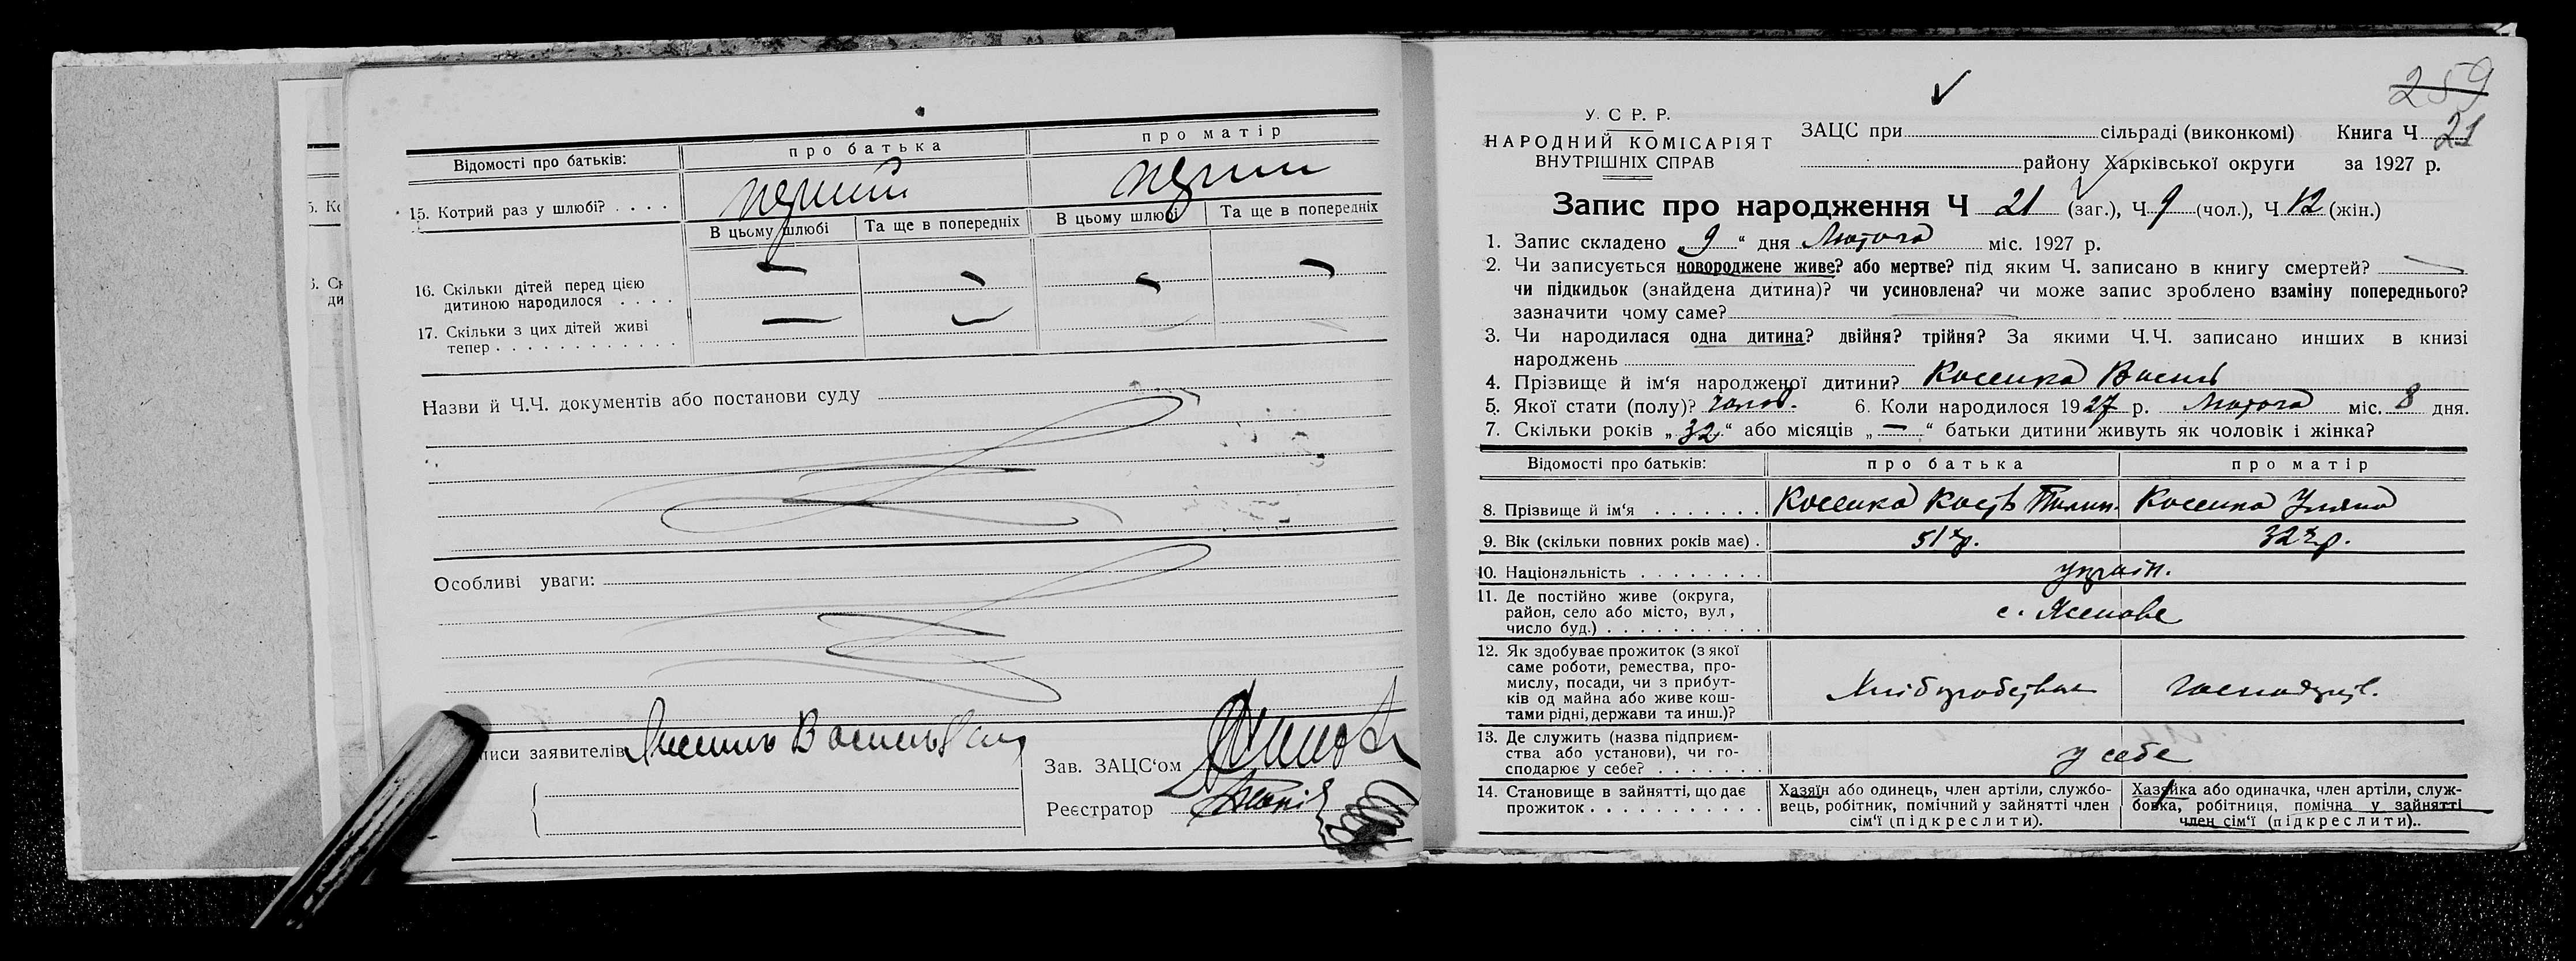 Відомості про батьків: про батька про матір
15. Котрий раз у шлюбі? . . . . перший перши
В цьому шлюбі Та ще в попередніх В цьому шлюбі Та ще в попередніх
16. Скільки дітей перед цією
дитиною народилося . . . . — — — —
17. Скільки з цих дітей живі
тепер . . . . . . . . . . . . — —
Назви й Ч.Ч. документів або постанови суду
Особливі уваги:
писи заявителів
Зав. ЗАЦС'ом
Реєстратор
259
У. С Р. Р.
НАРОДНИЙ КОМІСАРІЯТ
ВНУТРІШНІХ СПРАВ
ЗАЦС при сільраді (виконкомі) Книга Ч 21
району Харківської округи за 1927 р.
Запис про народження Ч 21 (заг.), Ч 9 (чол.), Ч 12 (жін.)
1. Запис складено „ 9 “ дня Лютого міс. 1927 р.
2. Чи записується новороджене живе? або мертве? під яким Ч. записано в книгу смертей?
чи підкидьок (знайдена дитина)? чи усиновлена? чи може запис зроблено взаміну попереднього?
зазначити чому саме?
3. Чи народилася одна дитина? двійня? трійня? За якими Ч.Ч. записано инших в книзі
народжень
4. Прізвище й ім'я народженої дитини? Василь
5. Якої стати (полу)? чолов. 6. Коли народилося 1927 р. Лютого міс. 8 дня.
7. Скільки років „ 32 “ або місяців „ — “ батьки дитини живуть як чоловік і жінка?
Відомості про батьків: про батька про матір
8. Прізвище й ім'я . . . . . . . Кость Уляна
9. Вік (скільки повних років має) . 51 р. 32 р.
10. Національність . . . . . . . . україн.
11. Де постійно живе (округа,
район, село або місто, вул,
число буд.) . . . . . . . . . . с. Ясенове
12. Як здобуває прожиток (з якої
саме роботи, ремества, про-
мислу, посади, чи з прибут-
ків од майна або живе кош-
тами рідні, держави та инш.)? Хліборобством господарст.
13. Де служить (назва підприєм-
ства або установи), чи го-
сподарює у себе? . . . . . . . у себе
14. Становище в зайнятті, що дає
прожиток . . . . . . . . . . .
Хазяїн або одинець, член артілі, службо-
вець, робітник, помічний у зайнятті член
сім'ї (підкреслити).
Хазяйка або одиначка, член артілі, служ-
бовка, робітниця, помічна у зайнятті
член сім'ї (підкреслити)..